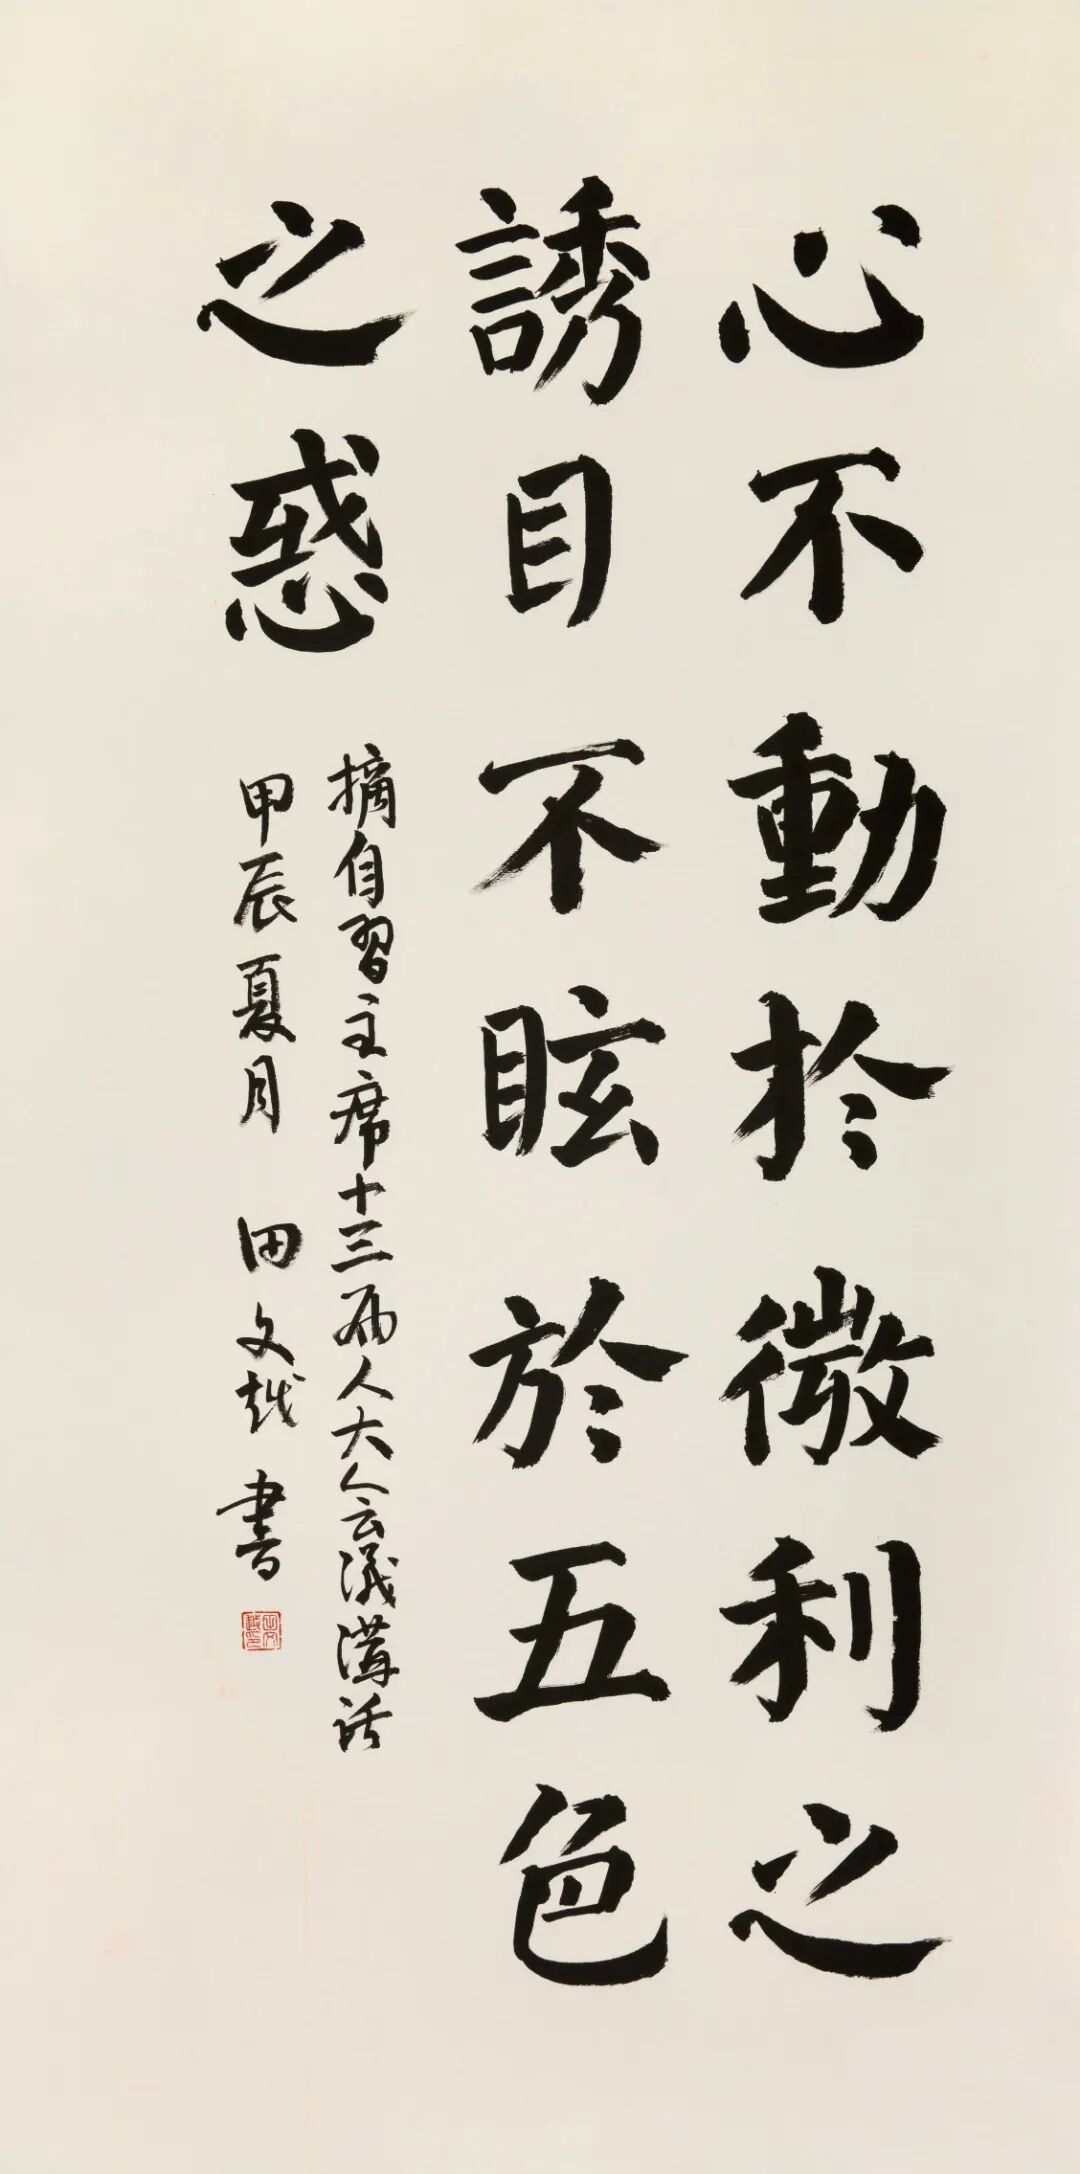 心不動於微利之
誘目不眩於五色
之惑
摘自習主席十三届人大会議講話
甲辰夏月 田文越書